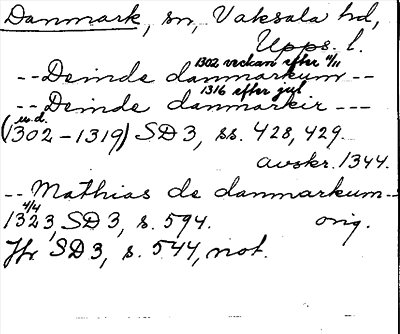 Danmark, sn, Vaksala hd,
Upps. l.
1302 veckan efter 4/11
-- Deinde danmarkum --
1316 efter jul
-- Deinde danmarkir ---
u.d.
(1302-1319) SD 3, ss. 428, 429.
avskr. 1344.
-- Mathias de danmarkum --
4/4
1323, SD 3, s. 594. orig.
Jfr SD 3, s. 544, not.